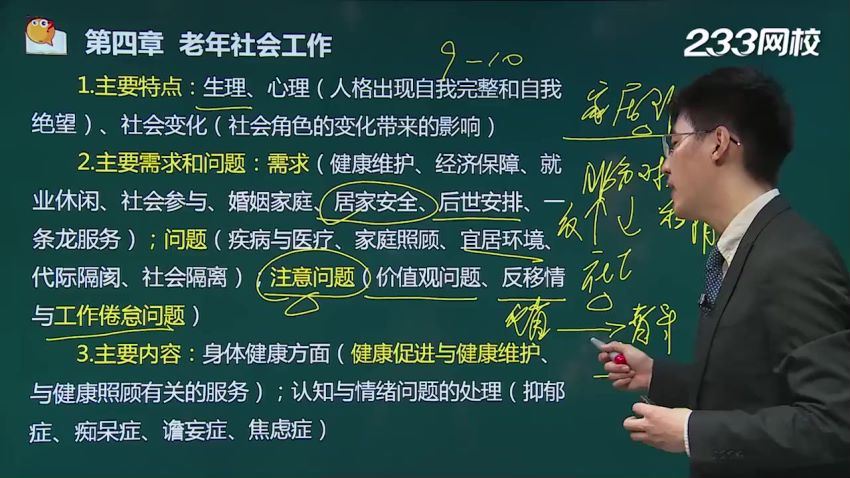 第四章 老年社会工作
233网校
9-10
1.主要特点：生理、心理（人格出现自我完整和自我
绝望）、社会变化（社会角色的变化带来的影响）
2.主要需求和问题：需求（健康维护、经济保障、就
业休闲、社会参与、婚姻家庭、居家安全、后世安排、一
条龙服务）；问题（疾病与医疗、家庭照顾、宜居环境、
代际隔阂、社会隔离）；注意问题（价值观问题、反移情
与工作倦怠问题）
3.主要内容：身体健康方面（健康促进与健康维护、
与健康照顾有关的服务）；认知与情绪问题的处理（抑郁
症、痴呆症、谵妄症、焦虑症）